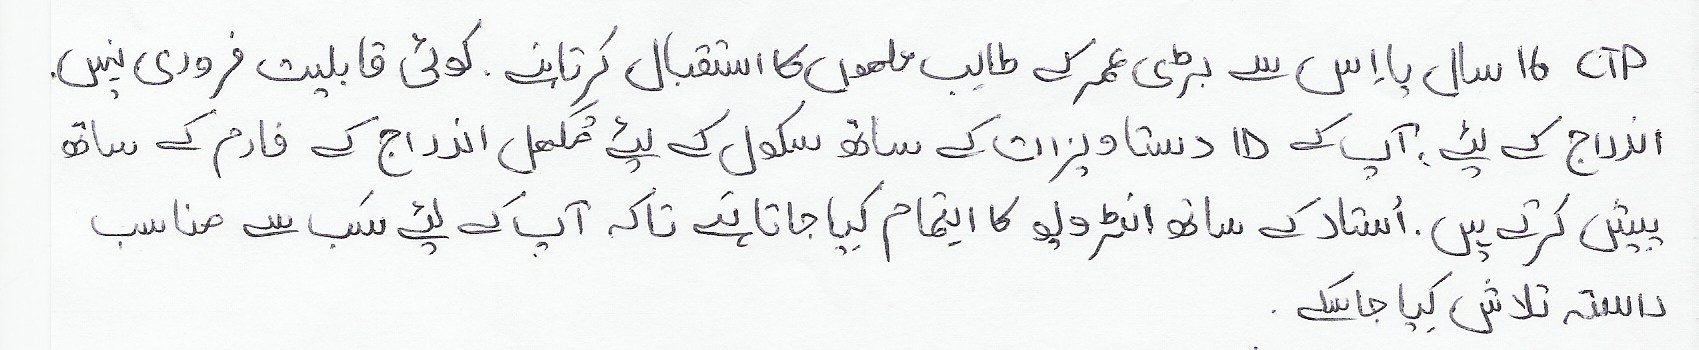 CTP 16 سال یا اِس سے بڑی عمر کے طالب علموں کا استقبال کرتا ہے. کوئی قابلیت ضروری نہیں.
اندراج کے لیٔے، آپ کے ID دستاویزات کے ساتھ سکول کے لیٔے مُکمل اندراج کے فارم کے ساتھ
پیش کرتے ہیں. اُستاد کے ساتھ انٹرویو کا اہتمام کیا جاتا ہے تاکہ آپ کے لیٔے سَب سے مناسب
راستہ تلاش کیا جا سکے.